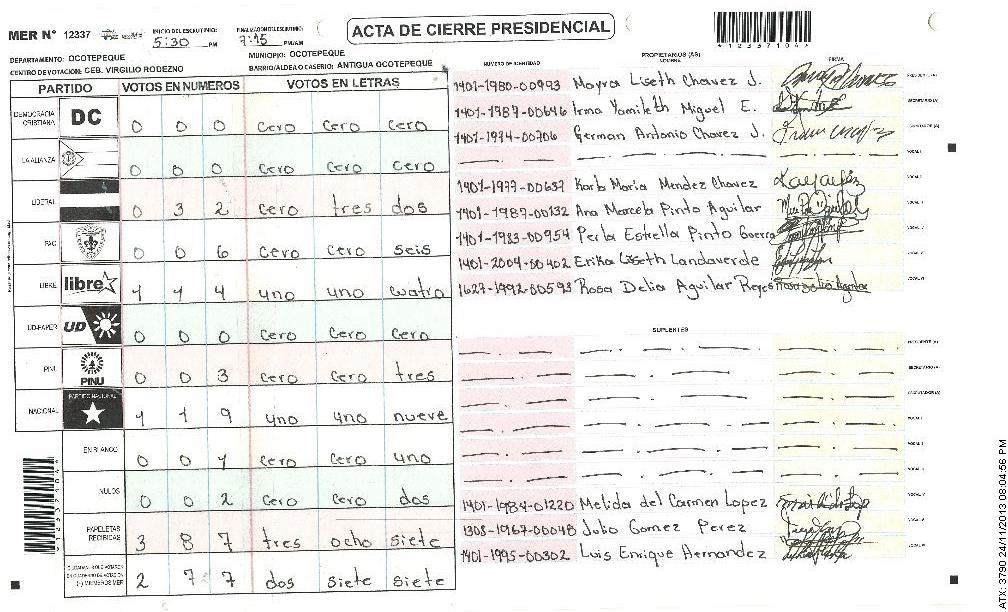 MER N° 12337
INICIO DEL ESCRUTINIO: 5:30 PM
FINALIZACION ESCRUTINIO: 7:15 PM/AM
ACTA DE CIERRE PRESIDENCIAL
DEPARTAMENTO: OCOTEPEQUE
MUNICIPIO: OCOTEPEQUE
CENTRO DE VOTACION: CEB. VIRGILIO RODEZNO
BARRIO/ALDEA O CASERIO: ANTIGUA OCOTEPEQUE
PARTIDO VOTOS EN NUMEROS VOTOS EN LETRAS
DEMOCRACIA CRISTIANA DC 0 0 0 cero cero cero
LA ALIANZA 0 0 0 cero cero cero
LIBERAL 0 3 2 cero tres dos
PAC 0 0 6 cero cero seis
LIBRE libre 1 1 4 uno uno cuatro
UD-FAPER UD 0 0 0 cero cero cero
PINU PINU 0 0 3 cero cero tres
NACIONAL PARTIDO NACIONAL 1 1 9 uno uno nueve
EN BLANCO 0 0 1 cero cero uno
NULOS 0 0 2 cero cero dos
PAPELETAS RECIBIDAS 3 8 7 tres ocho siete
CIUDADANOS QUE VOTARON EN CUADERNO DE VOTACION (+) MIEMBROS MER 2 7 7 dos siete siete
PROPIETARIOS (AS)
NUMERO DE IDENTIDAD NOMBRE FIRMA
1401-1980-00993 Mayra Liseth Chavez J. PRESIDENTE (A)
1401-1987-00646 Irma Yamileth Miguel E. SECRETARIO (A)
1401-1974-00706 German Antonio Chavez J. ESCRUTADOR (A)
VOCAL I
1401-1977-00637 Karla Maria Mendez Chavez
1401-1987-00132 Ana Marcela Pinto Aguilar
1401-1983-00954 Perla Estrella Pinto Guerra
1401-2004-00402 Erika Liseth Landaverde
1627-1992-00593 Rosa Delia Aguilar Reyes
SUPLENTES
PRESIDENTE (A)
SECRETARIO (A)
ESCRUTADOR (A)
VOCAL I
VOCAL II
1401-1984-01220 Melida del Carmen Lopez
1308-1967-00048 Julio Gomez Perez
1401-1995-00302 Luis Enrique Hernandez
ATX: 3790 24/11/2013 08:04:56 PM